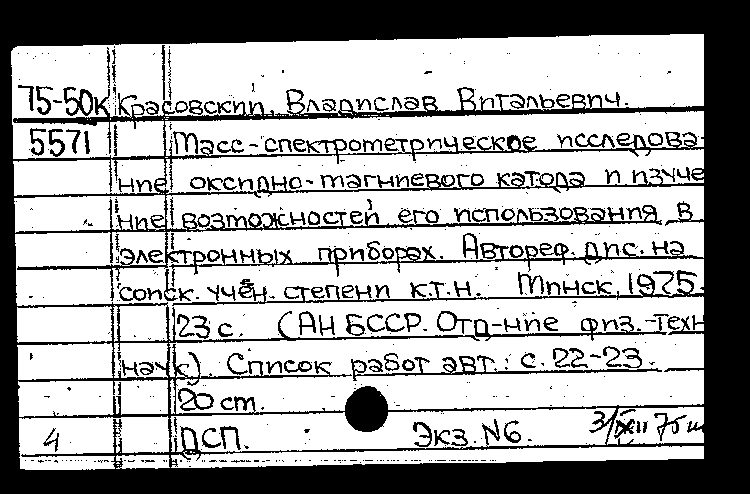 75-50к Красовский, Владислав Витальевич.
5571 Масс-спектрометрическое исследова-
ние оксидно-магниевого катода и изуче
ние возможностей его использования в
электронных приборах. Автореф. дис. на
соиск. учён. степени к.т.н. Минск, 1975.
23 с. (АН БССР. Отд-ние физ.-техн
наук). Список работ авт.: с. 22-23.
20 ст.
4 ДСП. Экз. N6.